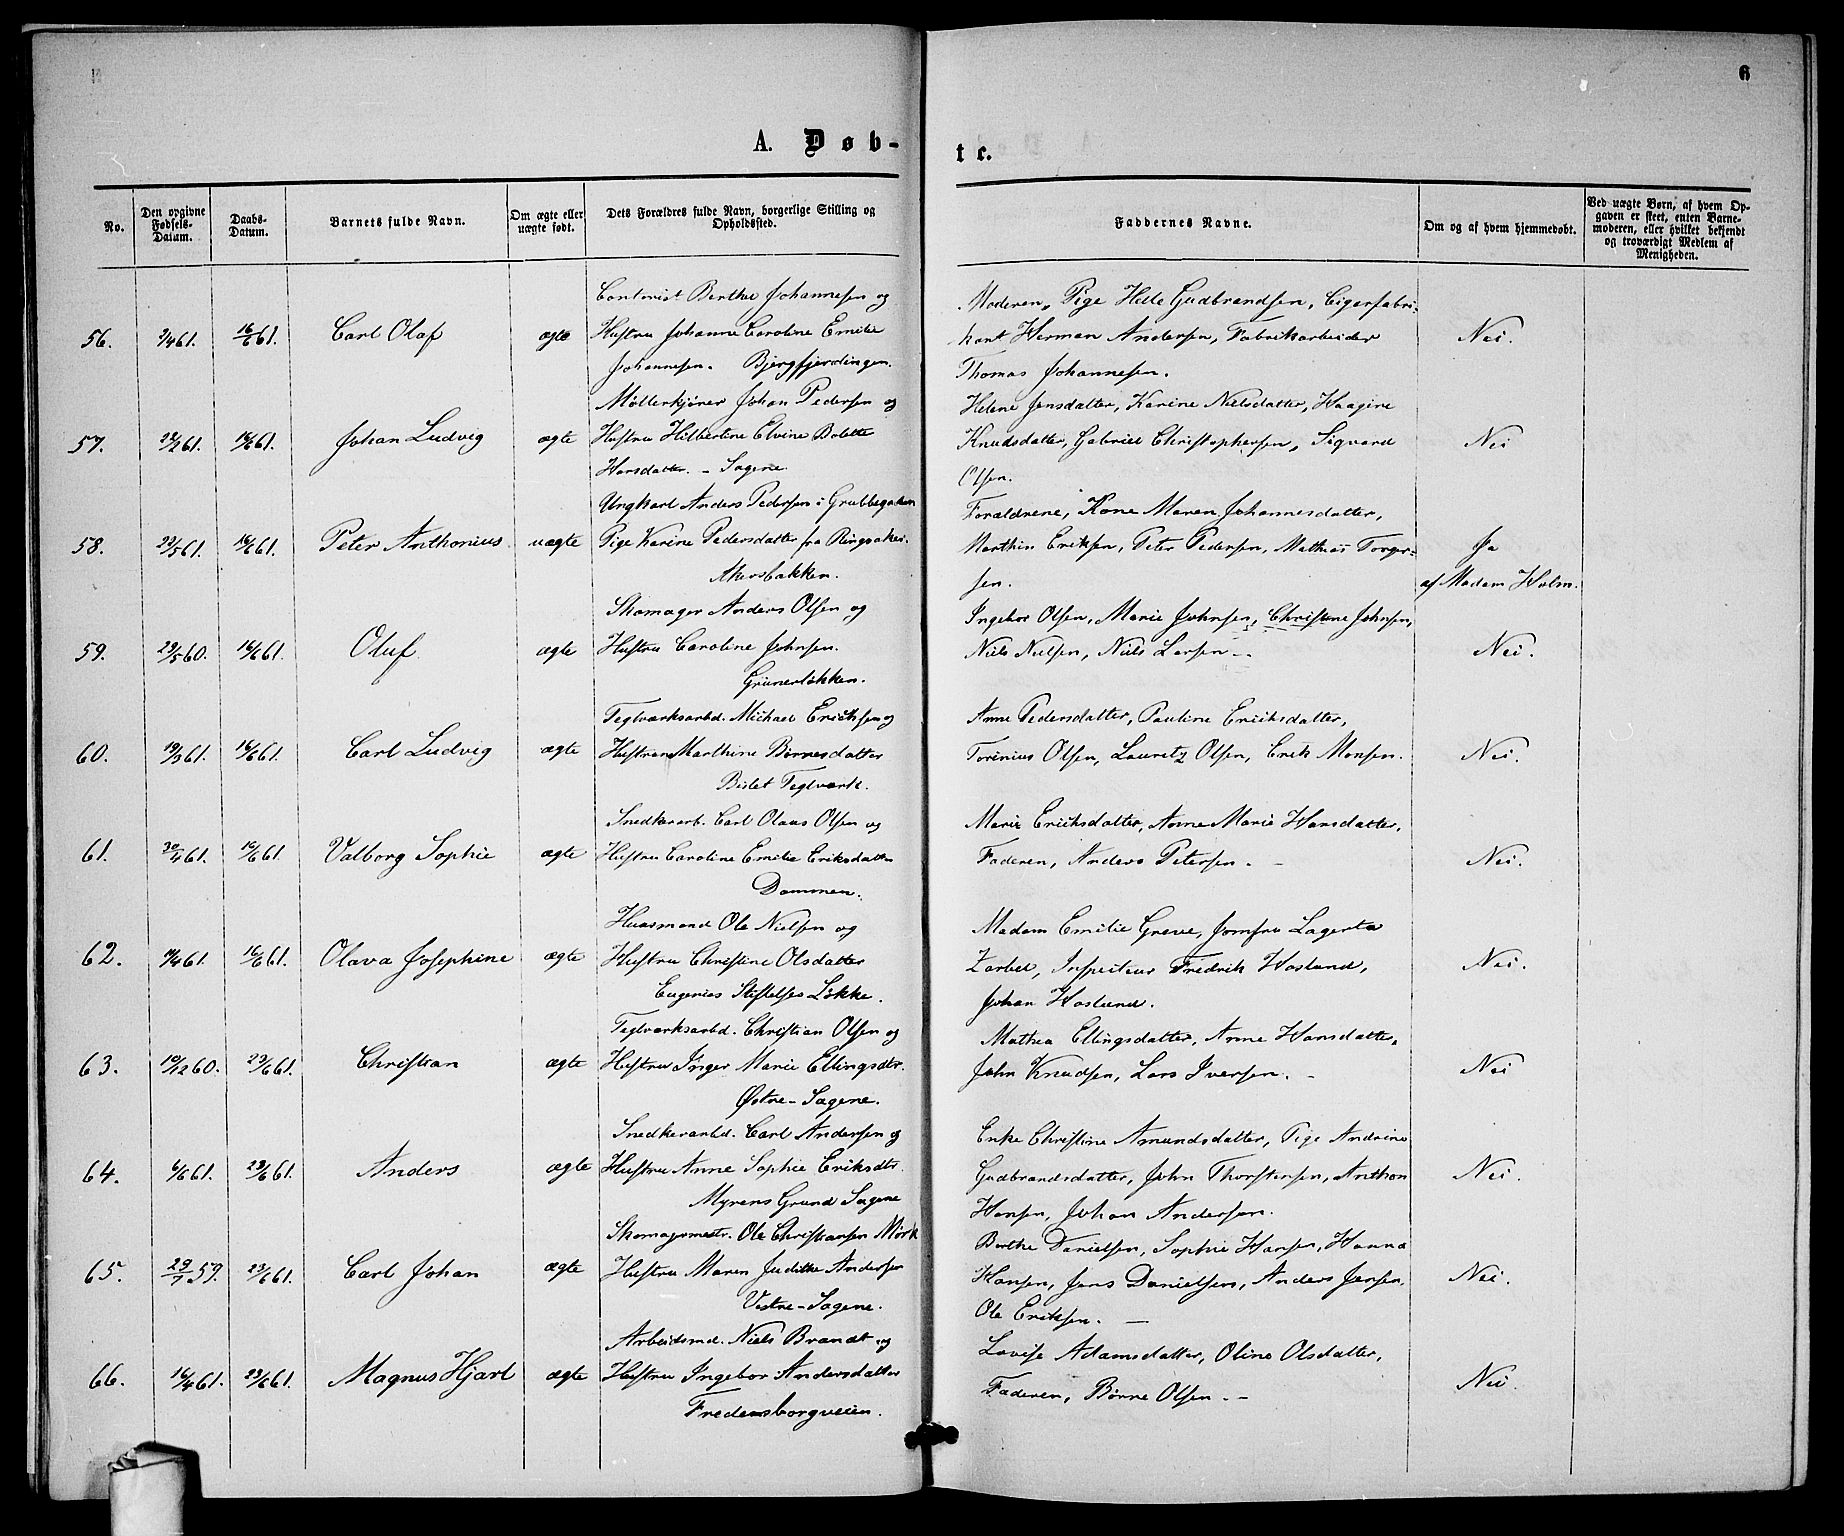 6
A. Døb-
te.
No.
Den opgivne Fødsels-Datum.
Daabs-Datum.
Barnets fulde Navn.
Om ægte eller uægte født.
Dets Forældres fulde Navn, borgerlige Stilling og Opholdssted.
Faddernes Navne.
Om og af hvem hjemmedøbt.
Ved uægte Børn, af hvem Opgaven er skeet, enten Barnemoderen, eller hvilket bekjendt og troværdigt Medlem af Menigheden.
Contorist Berthe Johannesen og
56. 61. 16/6 61. Carl Olaf ægte Hustru Johanne Caroline Emilie
Johannesen. Bjergfjerdingen.
Moderen, Pige Helle Gudbrandsen, Cigarfabri-
kant Herman Andersen, Fabrikarbeider Nei.
Thomas Johannesen.
Møllerkjører Johan Pedersen og
57. 61. 16/6 61. Johan Ludvig ægte Hustru Hilbertine Elvine Bolette
Hansdatter. - Sagene.
Helene Jensdatter, Karine Nielsdatter, Haagine
Knudsdatter, Gabriel Christophersen, Sigvard Nei
Olsen.
Ungkarl Anders Pedersen i Grubbegaden
58. 22/5 61. 16/6 61. Peter Anthonius uægte Pige Karine Pedersdatter fra Ringsaker.
Akersbakken.
Forældrene, Kone Maren Johannesdatter,
Marthin Eriksen, Peter Pedersen, Mathias Torger- Ja
sen. af Madam Holm.
Skomager Anders Olsen og
59. 29/5 60. 16/6 61. Oluf ægte Hustru Caroline Johnsen.
Grünerløkken.
Ingebor Olsen, Marie Johnsen, Christine Johnsen,
Niels Nielsen, Niels Larsen - Nei.
Teglværksarbd. Michael Ericksen og
60. 19/3 61. 16/6 61. Carl Ludvig ægte Hustru Marthine Børnesdatter
Bislet Teglværk.
Anne Pedersdatter, Pauline Eriksdatter,
Torinius Olsen, Lauritz Olsen, Erik Monsen. Nei.
Snedkerarb. Carl Olaus Olsen og
61. 30/4 61. 16/6 61. Valborg Sophie ægte Hustru Caroline Emilie Eriksdatter
Dammen.
Marie Eriksdatter, Anne Marie Hansdatter,
Faderen, Anders Petersen. - Nei.
Huusmand Ole Nielsen og
62. 61. 16/6 61. Olava Josephine ægte Hustru Christine Olsdatter
Eugenias Stiftelses Løkke.
Madam Emilie Greve, Jomfru Lagerta
Zarbel, Inspecteur Fredrik Haslund, Nei.
Johan Haslund.
Teglværksarbd. Christian Olsen og
63. 10/12 60. 23/6 61. Christian ægte Hustru Inger Marie Ellingsdtr.
Østre-Sagene.
Mathea Ellingsdatter, Anne Hansdatter,
John Knudsen, Lars Iversen. - Nei
Snedkerarbd. Carl Andersen og
64. 6/6 61. 23/6 61. Anders ægte Hustru Anne Sophie Eriksdtr.
Myrens Grund Sagene
Enke Christine Amundsdatter, Pige Andrine
Gudbrandsdatter, John Thorstensen, Anthon Nei.
Hansen, Johan Andersen.
Skomagermestr. Ole Christiansen Mørk
65. 29/7 59. 23/6 61. Carl Johan ægte Hustru Maren Judithe Andersen
Vestre-Sagene.
Berthe Danielsen, Sophie Hansen, Hanna
Hansen, Jens Danielsen, Anders Jensen, Nei.
Ole Eriksen. -
Arbeidsmd. Niels Brandt og
66. 16/4 61. 23/6 61. Magnus Hjarl ægte Hustru Ingebor Andersdatter
Fredensborgveien.
Lovise Adamsdatter, Oline Olsdatter,
Faderen, Børne Olsen. - Nei.